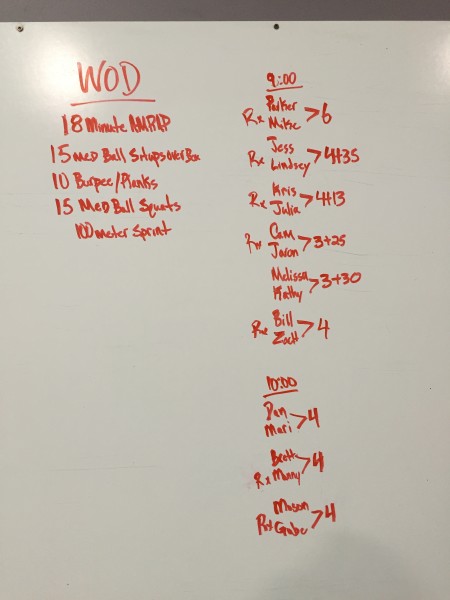 WOD
18 Minute AMRAP
15 Med Ball Situps over Box
10 Burpee/Planks
15 Med Ball Squats
100 meter Sprint
9:00
Parker
Rx Mike >6
Jess
Rx Lindsey >4+35
Kris
Rx Julia >4+13
Cam
Rx Jaron >3+25
Melissa
Kathy >3+30
Rx Bill
Zach >4
10:00
Dan
Mari >4
Rx Manny >4
Mason
Rx Gabe >4